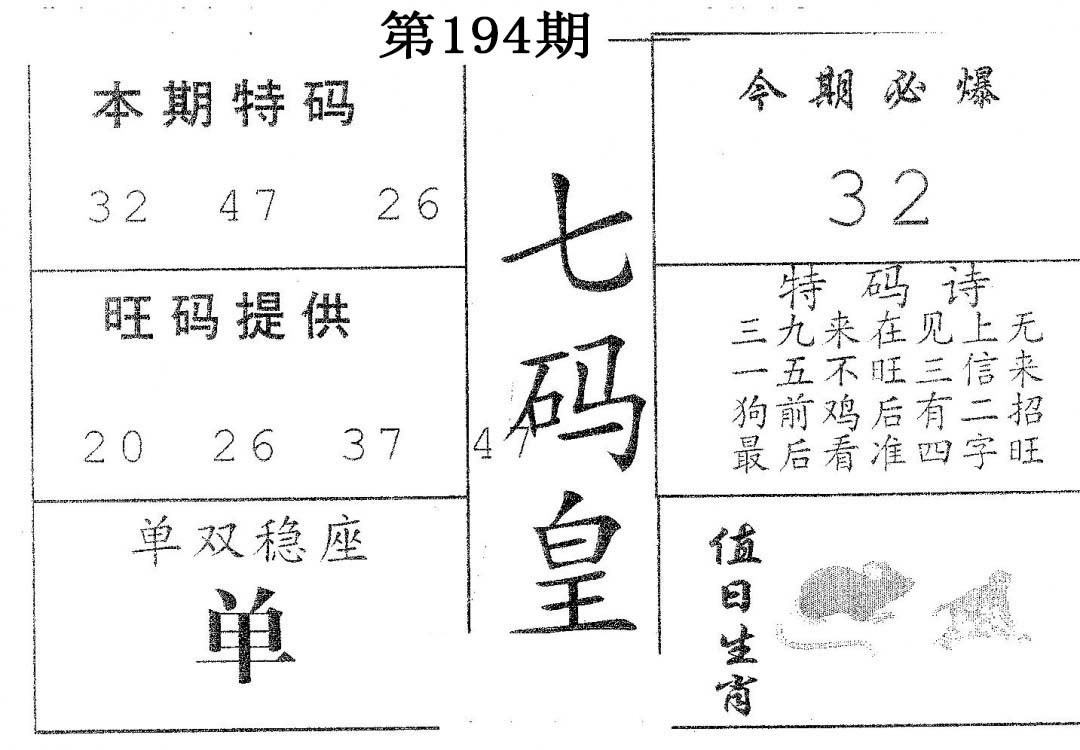 第194期
本期特码
32 47 26
旺码提供
20 26 37 47
单双稳座
单
七码皇
今期必爆
32
特码诗
三九来在见上无
一五不旺三信来
狗前鸡后有二招
最后看准四字旺
值日生肖